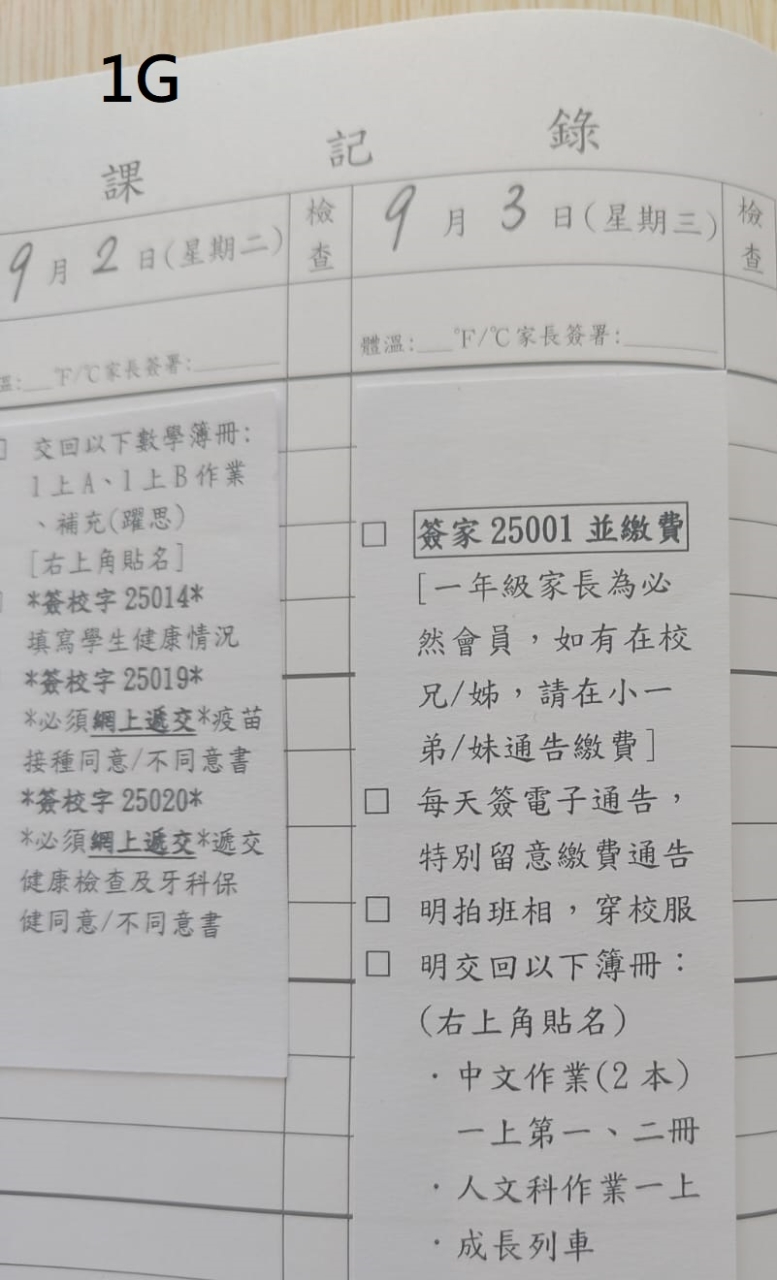 1G
課 記 錄
9月2日(星期二)
檢查
9月3日(星期三)
檢查
溫:__℉/℃家長簽署:______
體溫:__℉/℃家長簽署:______
□ 交回以下數學簿冊:
1上A、1上B作業
、補充(躍思)
[右上角貼名]
□ *簽校字 25014*
填寫學生健康情況
*簽校字 25019*
*必須網上遞交*疫苗
接種同意/不同意書
*簽校字 25020*
*必須網上遞交*遞交
健康檢查及牙科保
健同意/不同意書
□ 簽家 25001 並繳費
[一年級家長為必
然會員，如有在校
兄/姊，請在小一
弟/妹通告繳費]
□ 每天簽電子通告，
特別留意繳費通告
□ 明拍班相，穿校服
□ 明交回以下簿冊：
(右上角貼名)
·中文作業(2本)
一上第一、二冊
·人文科作業一上
·成長列車